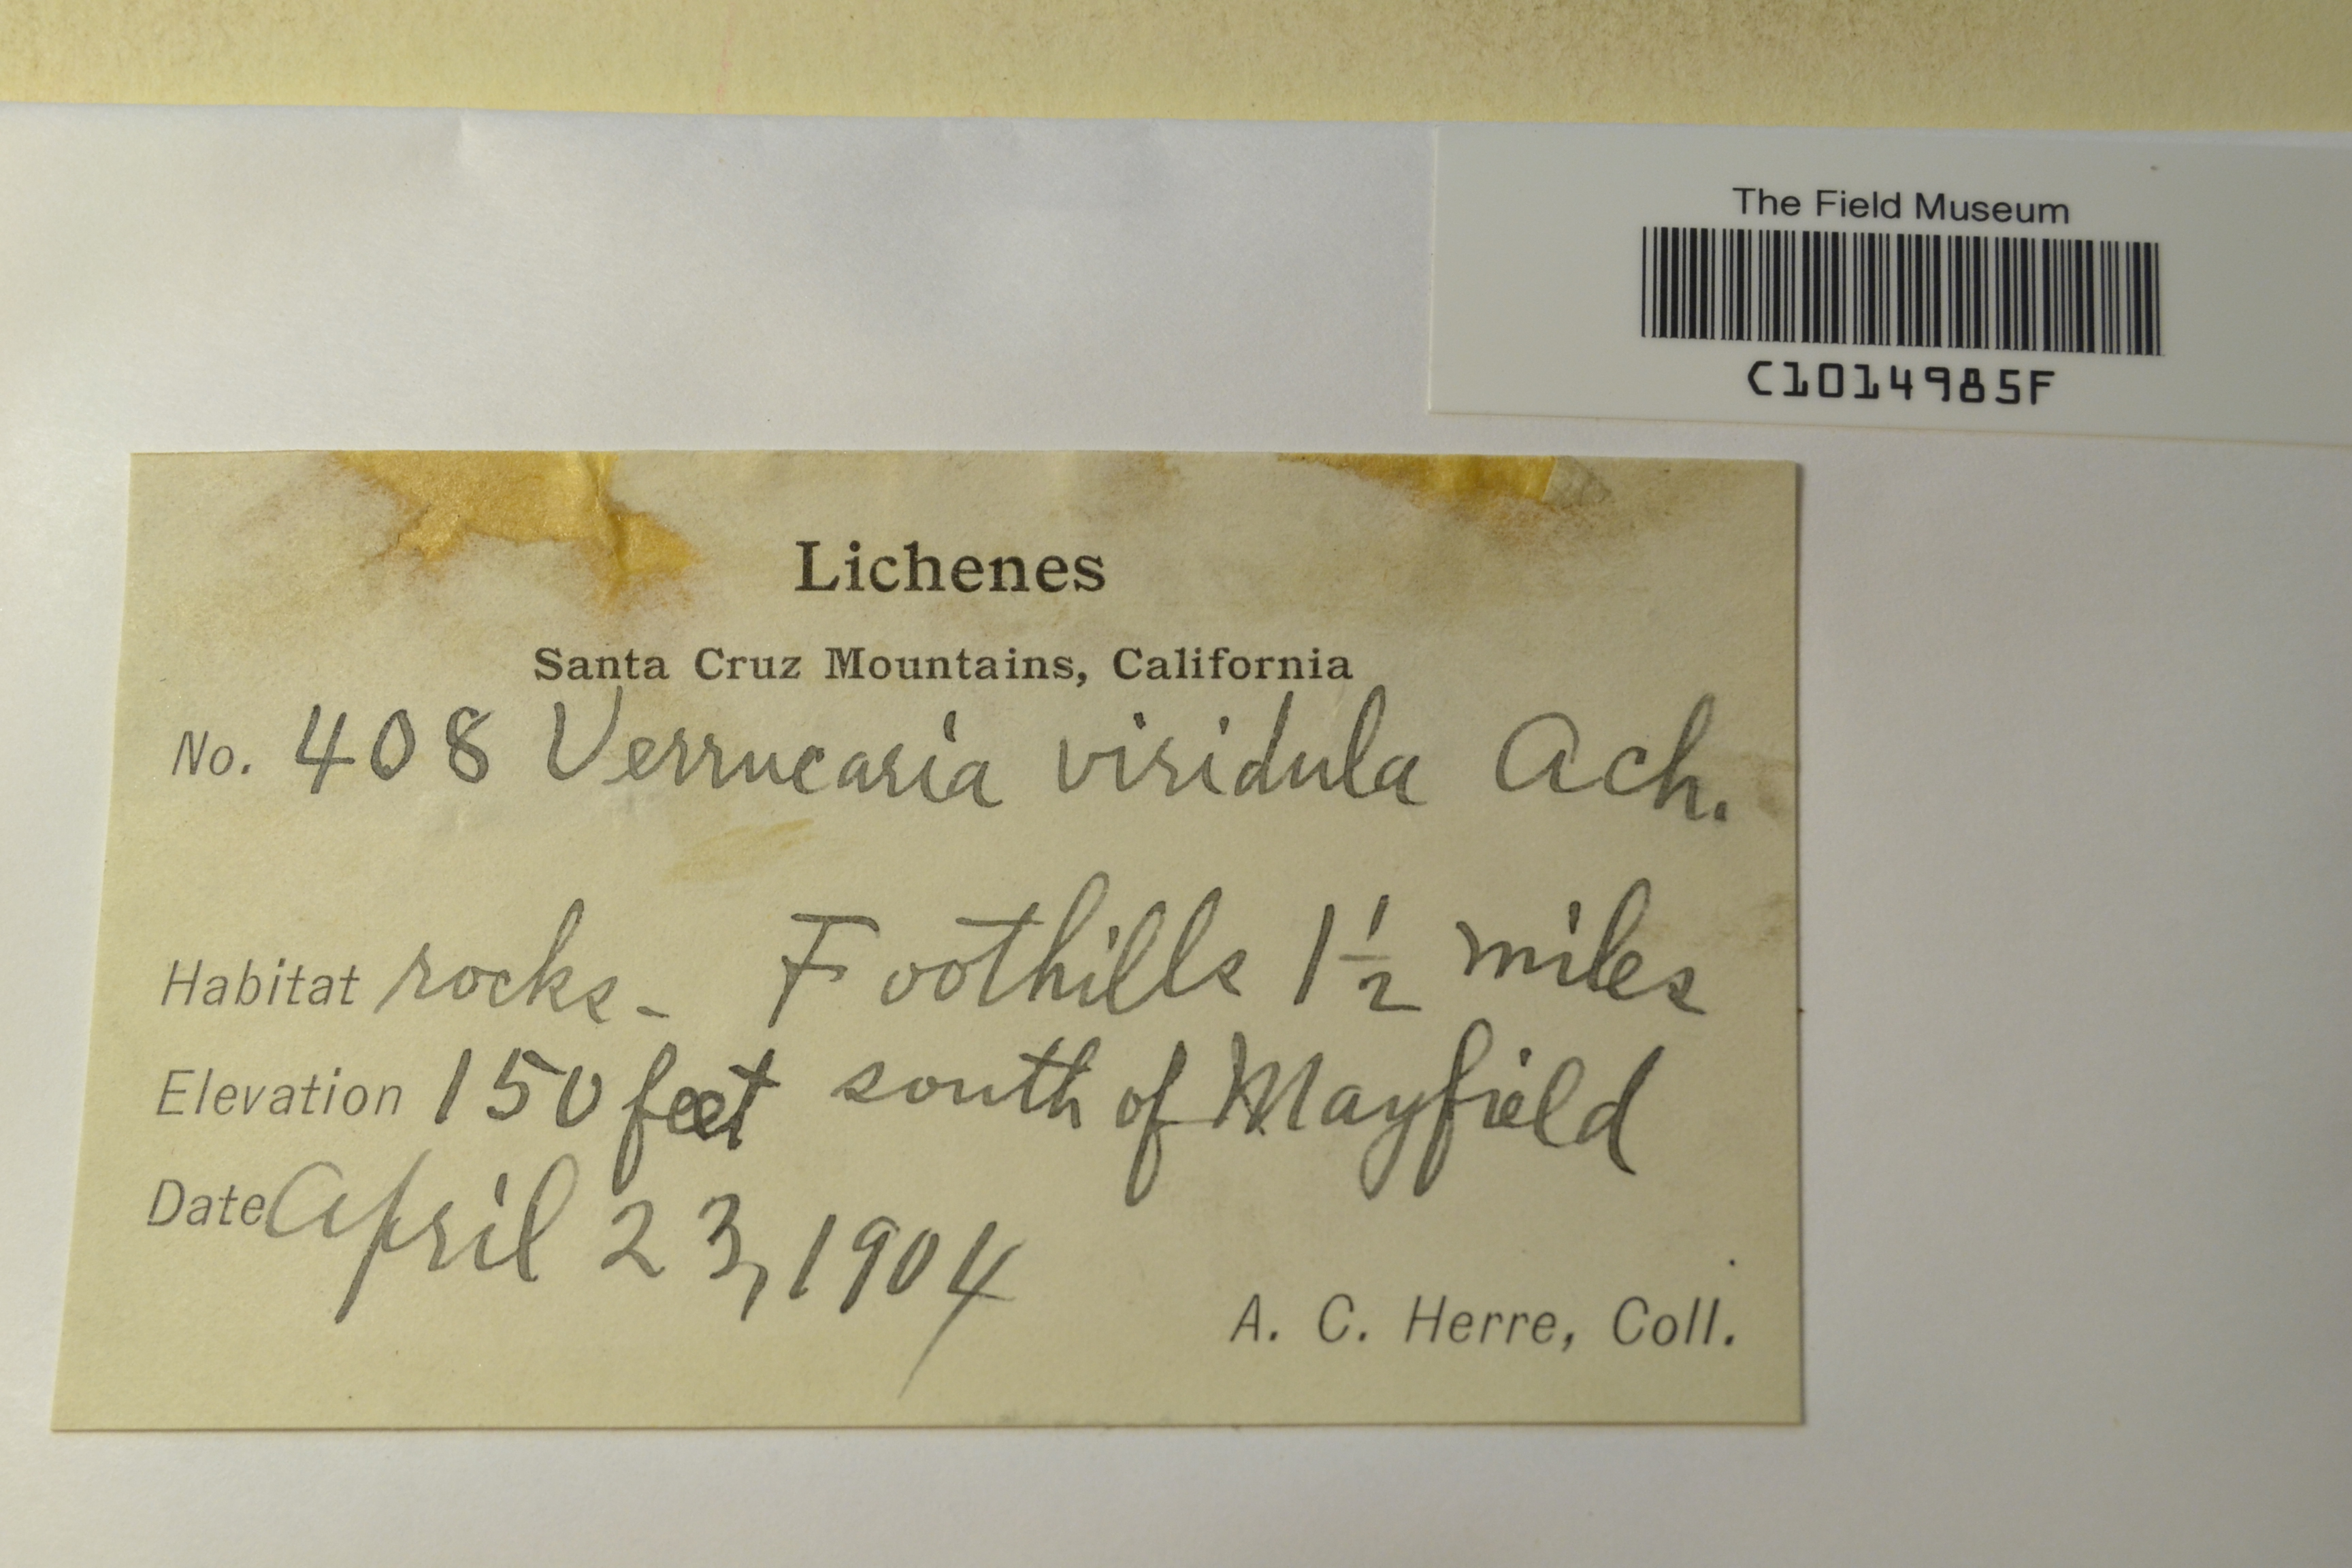 The Field Museum
C1014985F
Lichenes
Santa Cruz Mountains, California
No. 408 Verrucaria viridula Ach.
Habitat rocks - Foothills 1½ miles
Elevation 150 feet south of Mayfield
Date April 23, 1904
A. C. Herre, Coll.